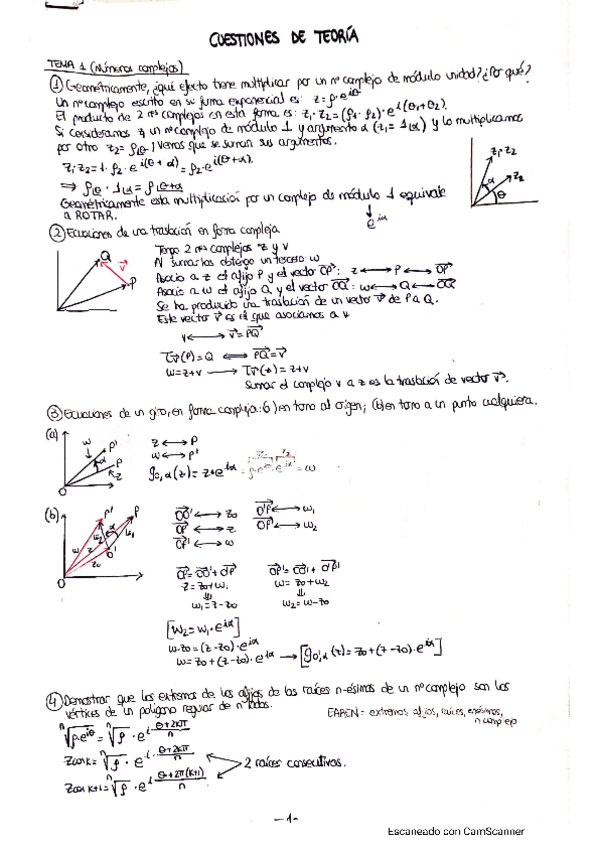 CUESTIONES DE TEORÍA
TEMA 1 (Números complejos)
① Geométricamente, ¿qué efecto tiene multiplicar por un nº complejo de módulo unidad? ¿Por qué?
Un nº complejo escrito en su forma exponencial es: z = ρ·e^{iθ}
El producto de 2 nºs complejos en esta forma es: z₁·z₂ = (ρ₁·ρ₂)·e^{i(θ₁+θ₂)}
Si consideramos z₁ un nº complejo de módulo 1 y argumento α (z₁ = 1_α) y lo multiplicamos
por otro z₂ = ρ_θ, vemos que se suman sus argumentos.
z₁·z₂ = 1·ρ₂·e^{i(θ+α)} = ρ₂·e^{i(θ+α)}
⇒ ρ_θ · 1_α = ρ_{θ+α}
Geométricamente esta multiplicación por un complejo de módulo 1 equivale
a ROTAR.
e^{iα}
z₁·z₂
z₂
α
θ
② Ecuaciones de una traslación en forma compleja
Tengo 2 nºs complejos z y v
Al sumarlos obtengo un tercero: w
Asocio a z el afijo P y el vector OP: z ⟷ P ⟷ OP
Asocio a w el afijo Q y el vector OQ: w ⟷ Q ⟷ OQ
Se ha producido una traslación de un vector v de P a Q.
Este vector v es el que asociamos a v
v ⟷ v = PQ
Q
v
P
T_v(P) = Q ⟷ PQ = v
w = z+v ⟶ T_v(z) = z+v
Sumar el complejo v a z es la traslación de vector v.
③ Ecuaciones de un giro, en forma compleja: (a) en torno al origen; (b) en torno a un punto cualquiera.
(a)
w
P'
α
P
z
O
z ⟷ P
w ⟷ P'
g_{0,α}(z) = z·e^{iα} = ρ·e^{iθ}·e^{iα} = w
(b)
P'
P
α
w₂
w₁
w
z
z₀
O'
O
OO' ⟷ z₀
O'P ⟷ w₁
OP ⟷ z
O'P' ⟷ w₂
OP' ⟷ w
OP = OO' + O'P
OP' = OO' + O'P'
z = z₀+w₁
w = z₀+w₂
⇓
⇓
w₁ = z-z₀
w₂ = w-z₀
[w₂ = w₁·e^{iα}]
w-z₀ = (z-z₀)·e^{iα}
w = z₀+(z-z₀)·e^{iα} ⟶ [g_{0',α}(z) = z₀+(z-z₀)·e^{iα}]
④ Demostrar que los extremos de los afijos de las raíces n-ésimas de un nº complejo son los
vértices de un polígono regular de n lados.
EARCN = extremos, afijos, raíces, enésimas,
n complejo
ⁿ√(ρe^{iθ}) = ⁿ√ρ · e^{i(θ+2kπ)/n}
Z con k = ⁿ√ρ · e^{i·(θ+2kπ)/n}
2 raíces consecutivas.
Z con k+1 = ⁿ√ρ · e^{i(θ+2π(k+1))/n}
-1-
Escaneado con CamScanner